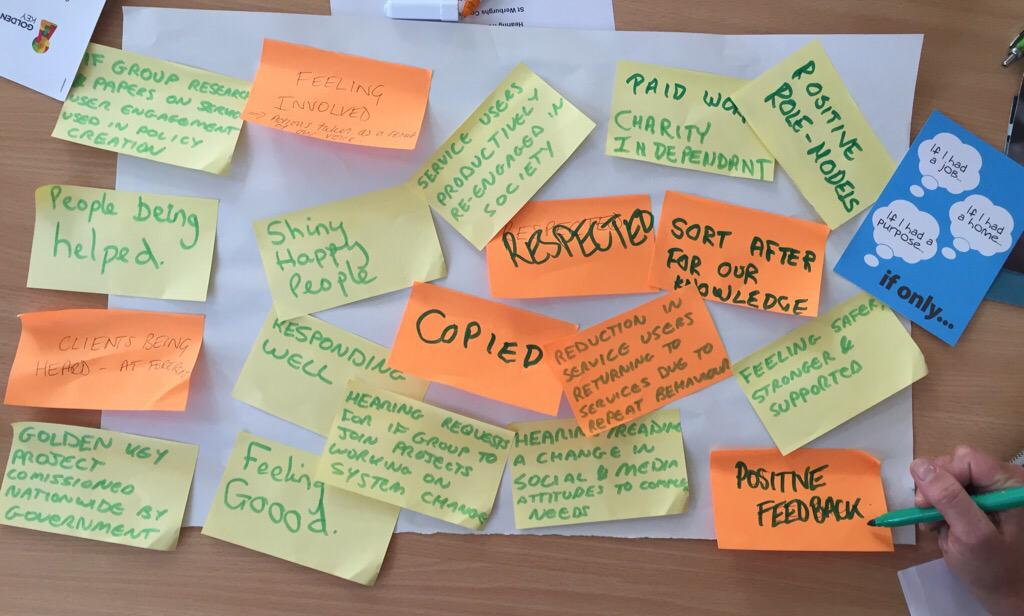 GOLDEN
KEY
St Werburghs
Hearing
IF GROUP RESEARCH
PAPERS ON
USER ENGAGEMENT
USED IN POLICY
CREATION
FEELING
INVOLVED
SERVICE USERS
PRODUCTIVELY
RE-ENGAGED IN
SOCIETY
PAID
CHARITY
INDEPENDANT
POSITIVE
ROLE-MODELS
If I had
a job...
If I had
a home...
If I had a
purpose...
if only...
People being
helped.
Shiny
Happy
People
RESPECTED
SORT AFTER
FOR OUR
KNOWLEDGE
CLIENTS BEING
HEARD - AT
RESPONDING
WELL
COPIED
REDUCTION IN
SERVICE USERS
RETURNING TO
SERVICES DUE TO
REPEAT BEHAVIOUR
FEELING SAFER
STRONGER &
SUPPORTED
GOLDEN KEY
PROJECT
COMISSIONED
NATIONWIDE BY
GOVERNMENT
Feeling
Goood.
HEARING REQUESTS
FOR IF GROUP TO
JOIN PROJECTS
WORKING ON
SYSTEM CHANGE
HEARING
A CHANGE IN
SOCIAL & MEDIA
ATTITUDES TO
NEEDS
POSITIVE
FEEDBACK